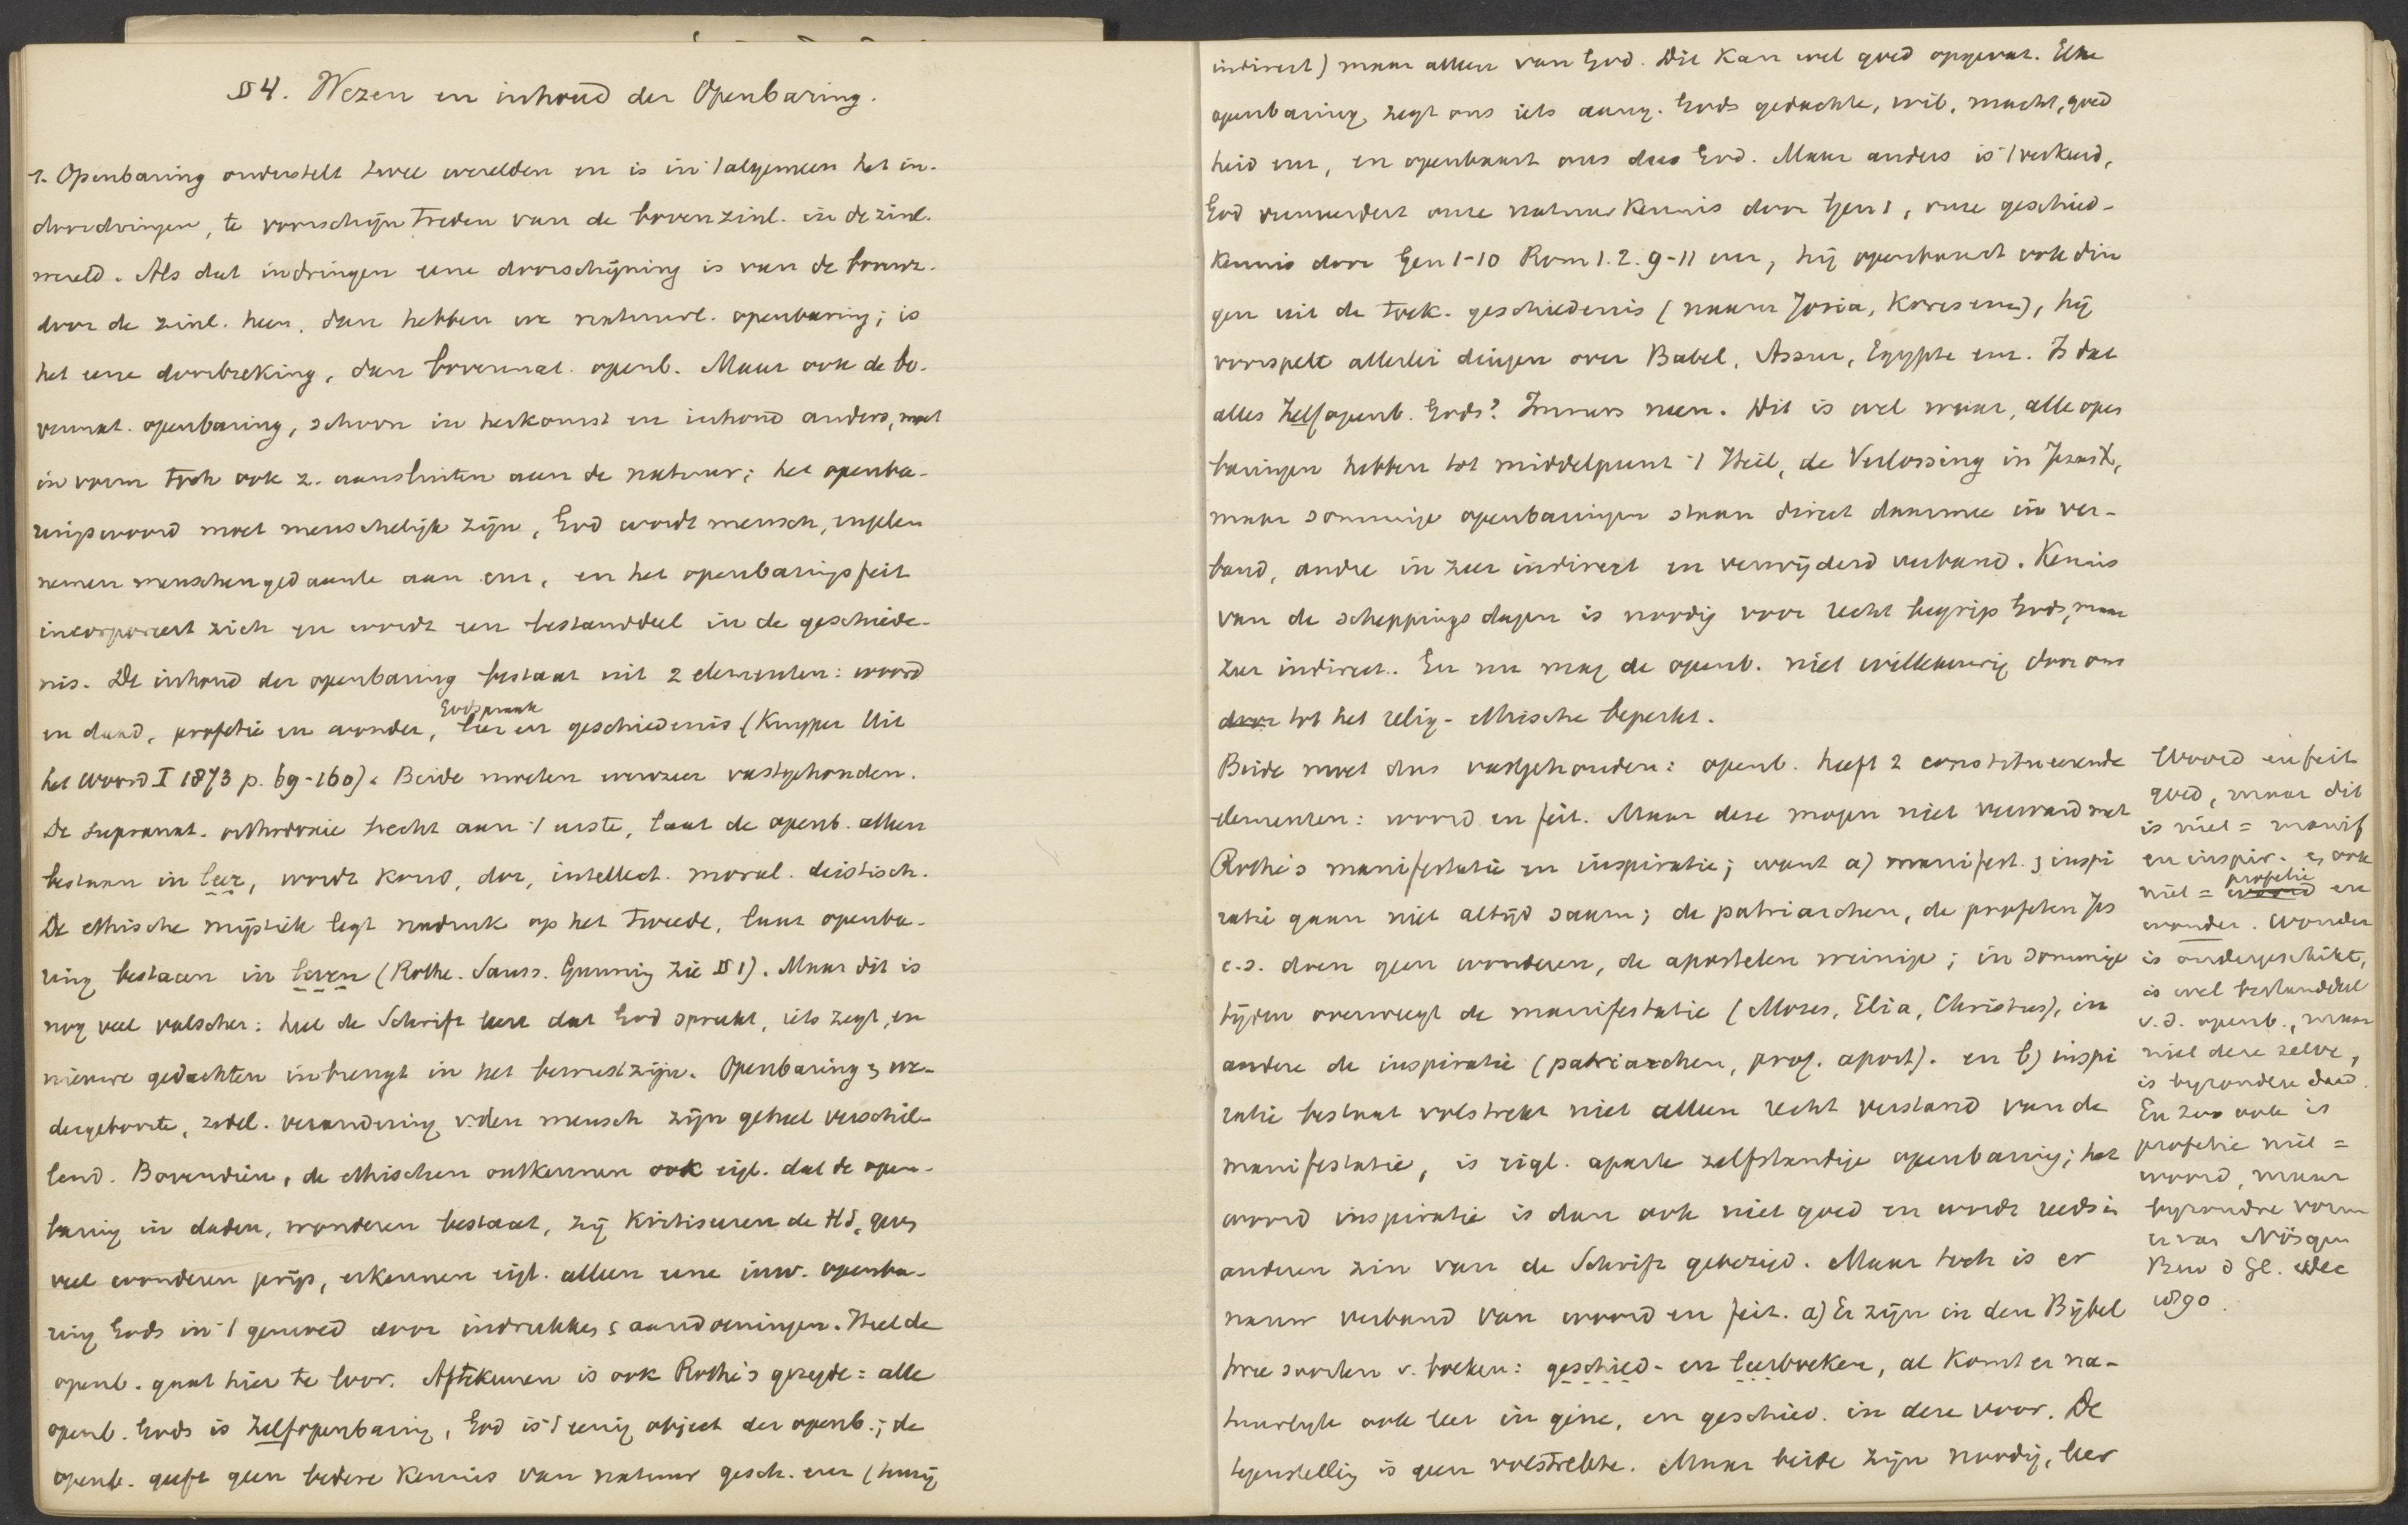 § 4. Wezen en inhoud der Openbaring.
1. Openbaring onderstelt twee werelden en is in 't algemeen het in-
doordringen, te voorschijn treden van de bovenzinl. in de zinl.
wereld. Als dat indringen eene doorschijning is van de bovenz.
door de zinl. heen, dan hebben we natuurl. openbaring; is
het eene doorbreking, dan bovennat. openb. Maar ook de bo-
vennat. openbaring, schoon in herkomst en inhoud anders, moet
in vorm toch ook z. aansluiten aan de natuur; het openba-
ringswoord moet menschelijk zijn, God wordt mensch, engelen
nemen menschengedaante aan enz, en het openbaringsfeit
incorporeert zich en wordt een bestanddeel in de geschiede-
nis. De inhoud der openbaring bestaat uit 2 elementen: woord
Godspraak
en daad, profetie en wonder, leer en geschiedenis (Kuyper Uit
het Woord I 1873 p. 69-160). Beide moeten evenzeer vastgehouden.
De supranat. orthodoxie hecht aan 't eerste, laat de openb. alleen
bestaan in leer, wordt koud, dor, intellect. moral. deistisch.
De ethische mystiek legt nadruk op het tweede, laat openba-
ring bestaan in leven (Rothe. Sauss. Gunning zie § 1). Maar dit is
nog veel valscher: heel de Schrift leert dat God spreekt, iets zegt, en
nieuwe gedachten inbrengt in het bewustzijn. Openbaring & we-
dergeboorte, zedel. verandering v. den mensch zijn geheel verschil-
lend. Bovendien, de ethischen ontkennen ook eigl. dat de open-
baring in daden, wonderen bestaat, zij kritiseren de HS, geven
veel wonderen prijs, erkennen eigl. alleen eene inw. openba-
ring Gods in 't gemoed door indrukken & aandoeningen. Heel de
openb. gaat hier te loor. Aftekeuren is ook Rothe's gezegde: alle
openb. Gods is Zelfopenbaring, God is 't eenig object der openb.; de
openb. geeft geen betere kennis van natuur gesch. enz (tenzij
indirect) maar alleen van God. Dit kan wel goed opgevat. Elke
openbaring zegt ons iets aang. Gods gedachte, wil, macht, goed
heid enz, en openbaart ons dus God. Maar anders is 't verkeerd,
God vermeerdert onze natuurkennis door Gen 1, onze geschied-
kennis door Gen 1-10 Rom 1. 2. 9-11 enz, hij openbaart ook din
gen uit de toek. geschiedenis (namen Josia, Kores enz), hij
voorspelt allerlei dingen over Babel, Assur, Egypte enz. Is dat
alles Zelfopenb. Gods? Immers neen. Dit is wel waar, alle open
baringen hebben tot middelpunt 't Heil, de Verlossing in Jezus X,
maar sommige openbaringen staan direct daarmee in ver-
band, andre in zeer indirect en verwijderd verband. Kennis
van de scheppingsdagen is noodig voor recht begrip Gods, maar
zeer indirect. En nu mag de openb. niet willekeurig door ons
door tot het relig-ethische beperkt.
Beide moet dus vastgehouden: openb. heeft 2 constitueerende
elementen: woord en feit. Maar deze mogen niet verward met
Rothe's manifestatie en inspiratie; want a) manifest. & inspi
ratie gaan niet altijd saam; de patriarchen, de profeten Jes
c.s. doen geen wonderen, de apostelen weinige; in sommige
tijden overweegt de manifestatie (Mozes, Elia, Christus), in
andere de inspiratie (patriarchen, prof. apost). en b) inspi
ratie bestaat volstrekt niet alleen recht verstand van de
manifestatie, is eigl. aparte zelfstandige openbaring; het
woord inspiratie is dan ook niet goed en wordt reeds in
anderen zin van de Schrift gebezigd. Maar toch is er
nauw verband van woord en feit. a) Er zijn in den Bijbel
twee soorten v. boeken: geschied- en leerboeken, al komt er na-
tuurlijk ook leer in gene, en geschied. in deze voor. De
tegenstelling is geen volstrekte. Maar beide zijn noodig, leer
Woord en feit
goed, maar dit
is niet = manif
en inspir. & ook
profetie
niet = woord en
wonder. Wonder
is ondergeschikt,
is wel bestanddeel
v. d. openb., maar
niet deze zelve,
is byzondere daad.
En zoo ook is
profetie niet =
woord, maar
byzondre vorm
ervan Nösgen
Bew d Gl.
1890.